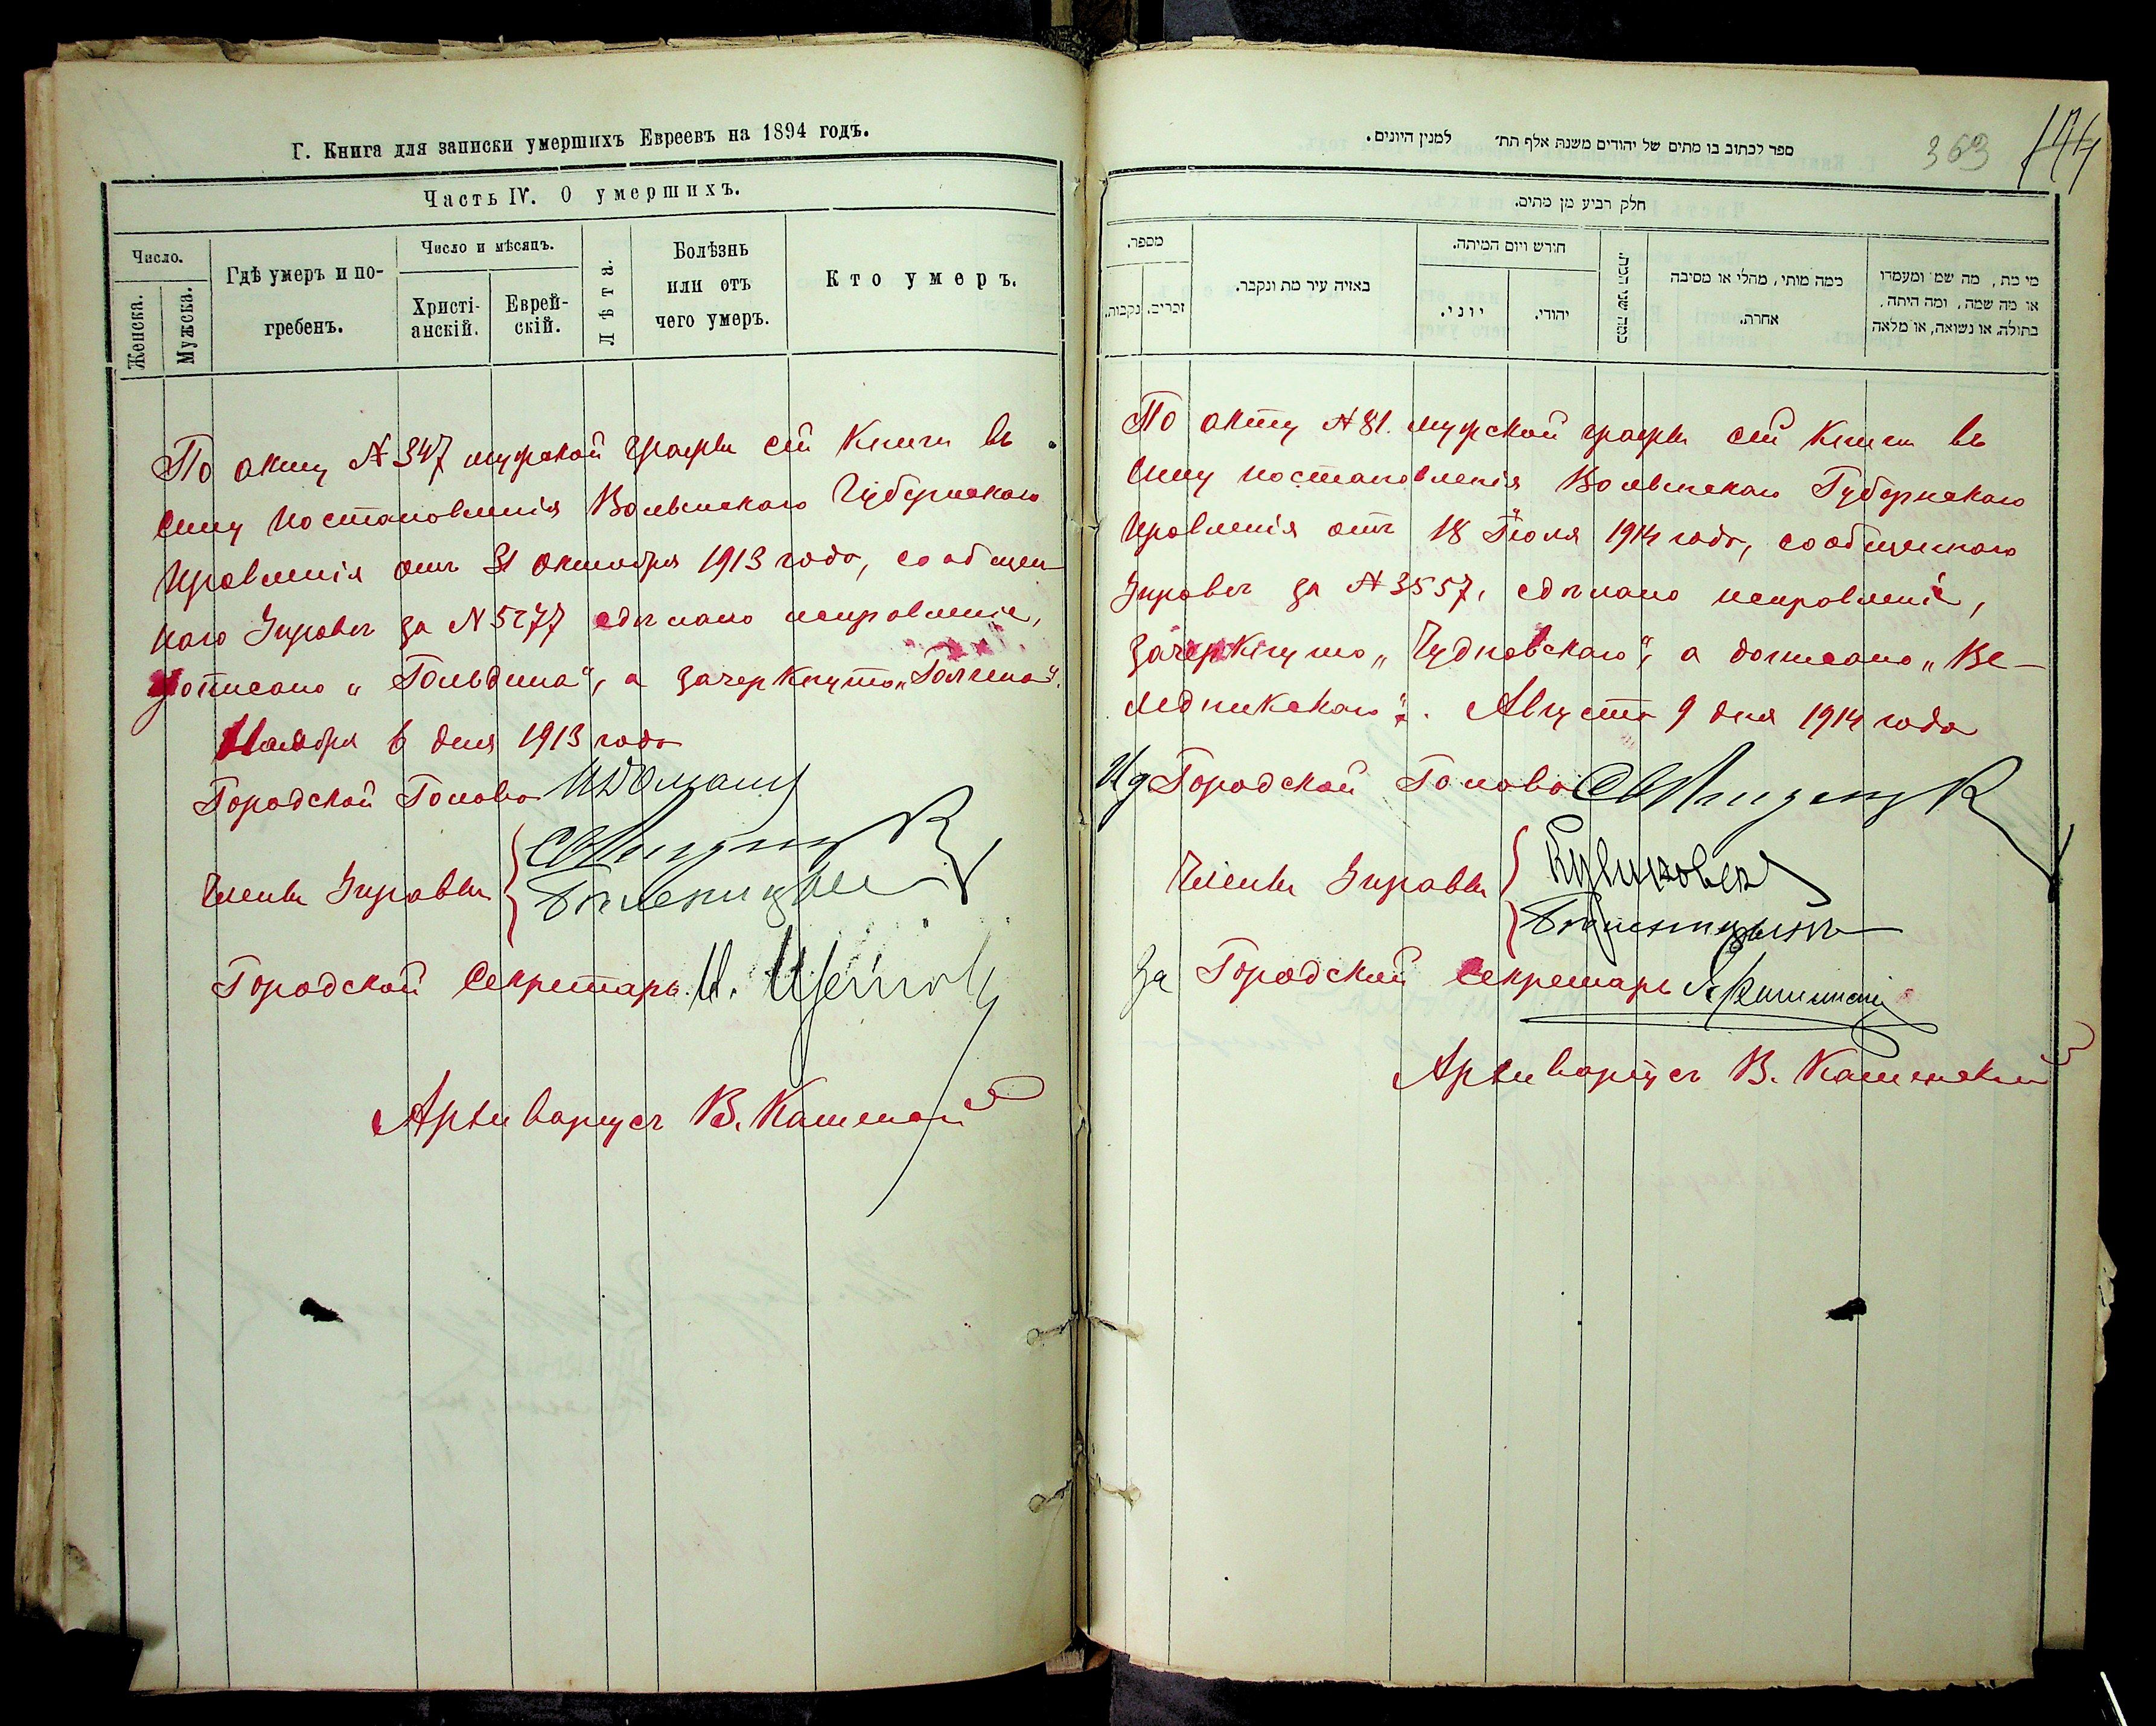 Г. Книга для записки умершихъ Евреевъ на 1894 годъ.
Часть IV. О умершихъ.
Число.
Женска.
Мужска.
Гдѣ умеръ и по-
гребенъ.
Число и мѣсяцъ.
Христі-
анскій.
Еврей-
скій.
Лѣта.
Болѣзнь
или отъ
чего умеръ.
Кто умеръ.
По акту № 347 мужской графы сей Книги въ
силу постановленія Волынскаго Губернскаго
Правленія отъ 31 Октября 1913 года, сообщен
наго Управѣ за № 5277 сдѣлано исправленіе,
дописано „Гольдина", а зачеркнуто „Голгина".
Ноября 6 дня 1913 года
Городской Голова
Члены Управы
Городской Секретарь
Архиваріусъ В. Каменской
363
ספר לכתוב בו מתים של יהודים משנת אלף תת׳ למנין היונים.
חלק רביע מן מתים.
מספר.
נקבות.
זכרים.
באזיה עיר מת ונקבר.
חודש ויום המיתה.
יוני.
יהודי.
כמה שני המת.
ממה מותי, מחלי או מסיבה
אחרת.
מי מת, מה שמו ומעמדו
או מה שמה, ומה היתה,
בתולה, או נשואה, או מלאה
По акту № 81 мужской графы сей Книги въ
силу постановленія Волынскаго Губернскаго
Правленія отъ 18 Іюля 1914 года, сообщеннаго
Управѣ за № 3557, сдѣлано исправленіе,
зачеркнуто „Чудновскаго", а дописано „Ве-
ледникскаго". Августа 9 дня 1914 года
Ид Городской Голова
Члены Управы
За Городской Секретарь
Архиваріусъ В. Каменской